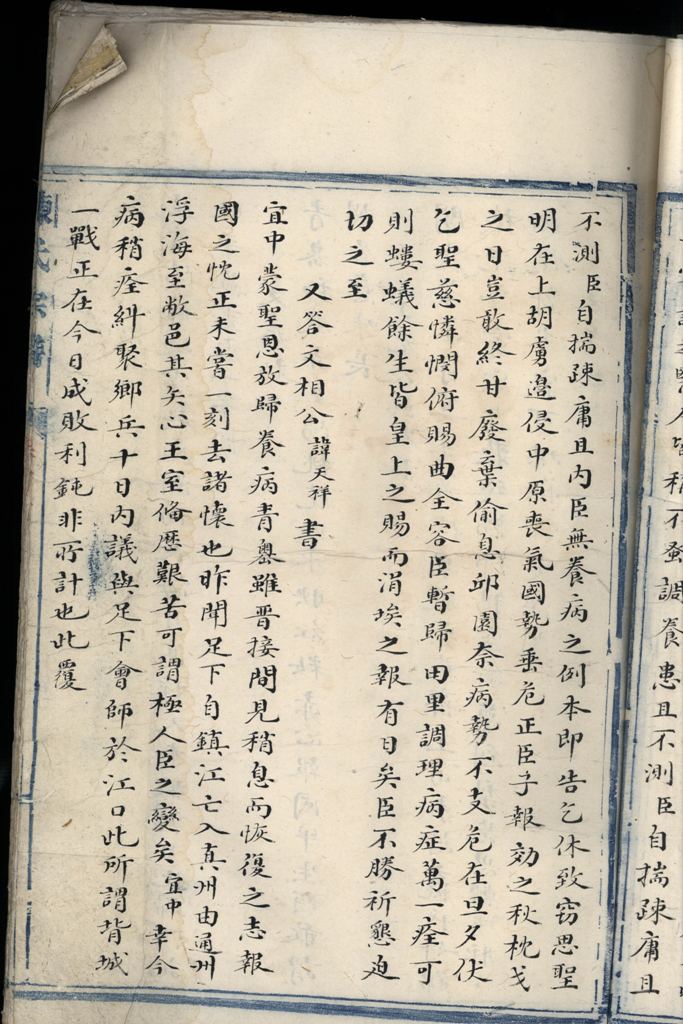 不測臣自揣疎庸且內臣無養病之例本即告乞休致窃思聖
明在上胡虜邉侵中原喪氣國勢垂危正臣子報効之秋枕戈
之日豈敢終甘廢棄偷息邱園奈病勢不支危在旦夕伏
乞聖慈憐憫俯賜曲全容臣暫歸田里調理病症萬一痊可
則螻蟻餘生皆皇上之賜而涓埃之報有日矣臣不勝祈懇迫
切之至
又答文相公諱天祥書
宜中蒙聖恩放歸養病青嶴雖晋接間見稍息而恢復之志報
國之忱正未嘗一刻去諸懷也昨聞足下自鎮江亡入真州由通州
浮海至敝邑其矢心王室偹歷艱苦可謂極人臣之變矣宜中幸今
病稍痊糾聚鄉兵十日內議與足下會師於江口此所謂背城
一戰正在今日成敗利鈍非所計也此覆
陳氏宗譜
人皆稱不蚤調養患且不測臣自揣疎庸且